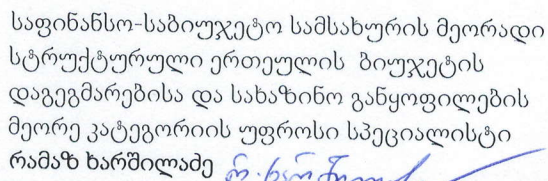 საფინანსო-საბიუჯეტო სამსახურის მეორადი
სტრუქტურული ერთეულის ბიუჯეტის
დაგეგმარებისა და სახაზინო განყოფილების
მეორე კატეგორიის უფროსი სპეციალისტი
რამაზ ხარშილაძე